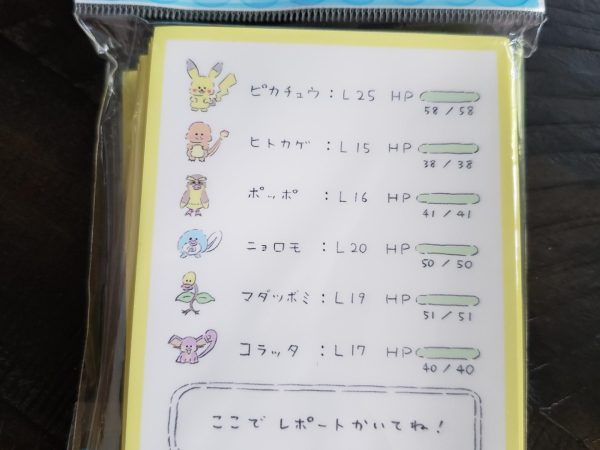 ピカチュウ：L25 HP
58/58
ヒトカゲ：L15 HP
38/38
ポッポ：L16 HP
41/41
ニョロモ：L20 HP
50/50
マダツボミ：L19 HP
51/51
コラッタ：L17 HP
40/40
ここで レポートかいてね！